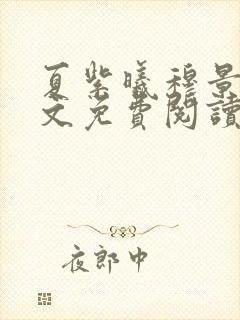 夏紫曦穆景
文免費閱讀
夜郎中